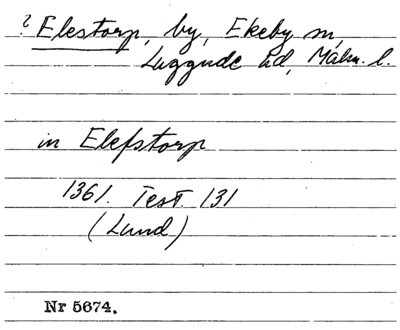 ? Elestorp, by, Ekeby sn,
Luggude hd, Malm. l.
in Elefstorp
1361. Test. 131
(Lund)
Nr 5674.